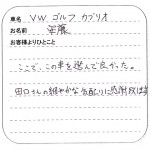 車名 VW ゴルフ カブリオ
お名前 安藤
お客様よりひとこと
ここで、この車を選んで良かった。
田口さんの細やかな気配りに感謝致しま